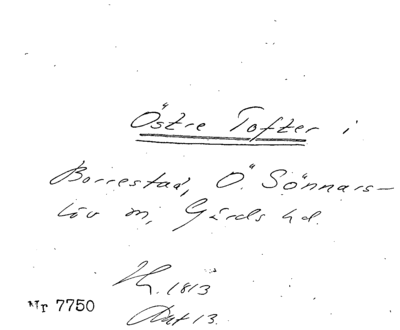 Östre Tofter i
Borrestad, Ö. Sönnars-
löv m, Gärds hd.
1813
Nr 7750
13.